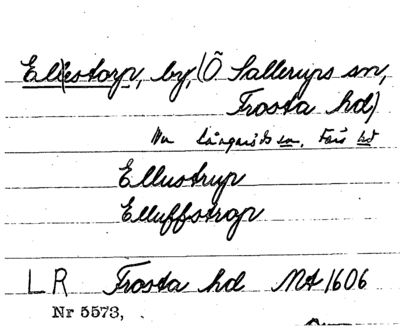 Ellestorp, by, (Ö Sallerups sn,
Frosta hd)
Nu Långaröds sn, Färs hd
Ellustrup
Elluffstrop
LR Frosta hd NA 1606
Nr 5573,